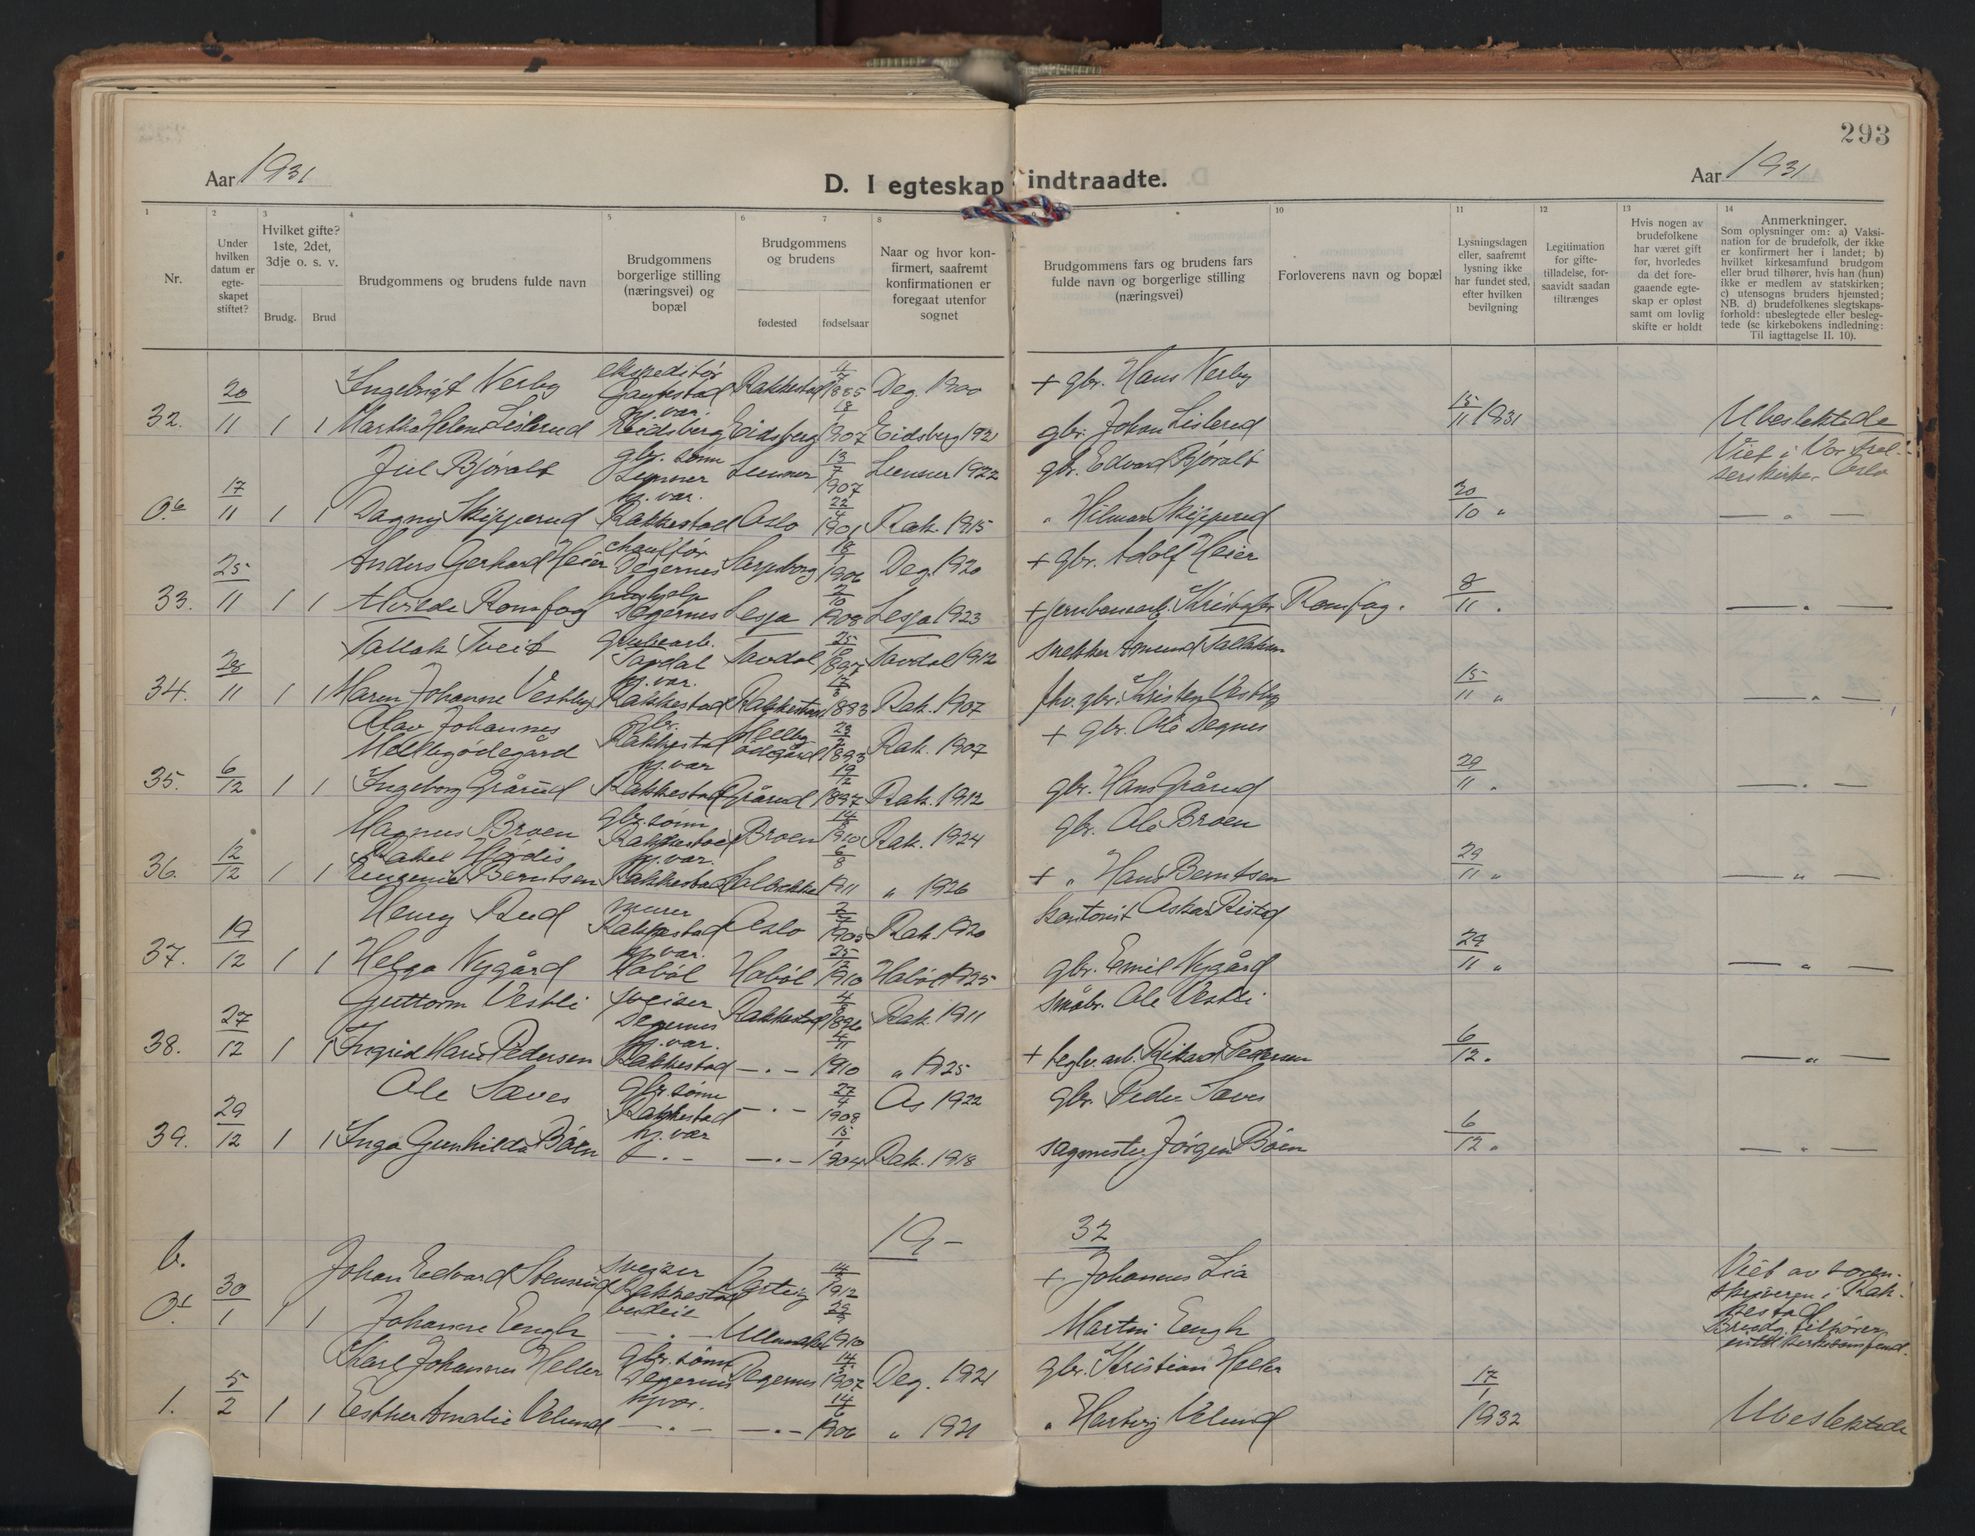 293
Aar 1931
D. I egteskap indtraadte.
Aar 1931
1 2 3 4 5 6 7 8 10 11 12 13 14
Nr.
Under hvilken datum er egteskapet stiftet?
Hvilket gifte? 1ste, 2det, 3dje o. s. v.
Brudg. Brud
Brudgommens og brudens fulde navn
Brudgommens borgerlige stilling (næringsvei) og bopæl
Brudgommens og brudens
fødested fødselsaar
Naar og hvor konfirmert, saafremt konfirmationen er foregaat utenfor sognet
Brudgommens fars og brudens fars fulde navn og borgerlige stilling (næringsvei)
Forloverens navn og bopæl
Lysningsdagen eller, saafremt lysning ikke har fundet sted, efter hvilken bevilgning
Legitimation for giftetilladelse, forsaavidt saadan tiltrænges
Hvis nogen av brudefolkene har været gift før, hvorledes da det foregaaende egteskap er opløst samt om lovlig skifte er holdt
Anmerkninger.
Som oplysninger om: a) Vaksination for de brudefolk, der ikke er konfirmert her i landet; b) hvilket kirkesamfund brudgom eller brud tilhører, hvis han (hun) ikke er medlem av statskirken; c) utensogns bruders hjemsted; NB. d) brudefolkenes slegtskapsforhold: ubeslegtede eller beslegtede (se kirkebokens indledning: Til iagttagelse II. 10).
Ingebrigt Nerby ekspeditør Rakkestad 1885 Deg. 1900 + gbr. Hans Nerby
32. 20/11 1 1 Martha Helene Lislerud hj.var. Eidsberg Eidsberg 1907 Eidsberg 1921 gbr. Johan Lislerud 15/11 1931 Ubeslektede
Juel Bjøralt gbr. sønn 13/7 1907 1922 gbr. Edvard Bjøralt Viet i Vor Frelserskirke Oslo
0.6 17/11 1 1 Dagny Skipperud hj.var. Rakkestad Oslo 22/4 1901 Rak. 1915 " Hilmar Skipperud 20/10 " — " —
Anders Gerhard Heier chauffør Degernes Sarpsborg 1906 Deg. 1920 + gbr. Adolf Heier
33. 25/11 1 1 Alvilde Romfog Degernes Lesja 2/10 1908 Lesja 1923 + jernbanearb. Kristofer Romfog. 8/11 " — " —
Tallak Tveit grubearb. 25 1912 snekker Amund Tallaksen
34. 28/11 1 1 Maren Johanne Vestby hj.var. Rakkestad Rakkestad 1893 Rak. 1907 fhv. gbr. Kristen Vestby 15/11 " — " —
Olav Johannes Mellbyødegård gbr. Rakkestad 1893 Rak. 1907 + gbr. Ole Degnes
35. 6/12 1 1 Ingeborg Grårud hj.var Rakkestad Grårud 19/12 1897 Rak. 1912 gbr. Hans Grårud 29/11 " — " —
Magnus Broen gbr. sønn Rakkestad Broen 1910 Rak. 1924 gbr. Ole Broen
36. 12/12 1 1 Rakel Hjørdis Eugenie Berntsen hj.var. Rakkestad 6/8 1911 " 1926 + " Hans Berntsen 29/11 " — " —
Henry Rud murer Rakkestad Oslo 1905 Rak. 1920 kontorist Oskar
37. 19/12 1 1 Helga Nygård hj.var. Hobøl Hobøl 1910 Hobøl 1925 gbr. Emil Nygård 29/11 " — " —
Guttorm Vestli sveiser Degernes Rakkestad 1896 Rak. 1911 småbr. Ole Vestli
38. 27/12 1 1 Ingrid Marie Pedersen hj.var. Rakkestad — " — 1910 " 1925 + teglv. arb. Rikard Pedersen 6/12 " — " —
Ole Sæves gbr. sønn Rakkestad — " — 27/4 1908 Os 1922 gbr. Peder Sæves
39. 29/12 1 1 Inga Gunhilda Böen hj.var — " — — " — 15/1 1904 Rak. 1918 sagmester Jørgen Böen 6/12 " — " —
19 — 32
b. Johan Edvard Stensrud sveiser Rakkestad Varteig 1912 + Johannes Lia Viet av sorenskriveren i Rakkestad
30/1 1 1 Johanne Eengh budeie — " — 1910 Martin Eengh Brudg. tilhører intet kirkesamfund.
Karl Johannes Heller gbr. sønn Degernes Degernes 1907 Deg. 1921 gbr. Kristian Heller
1. 5/2 1 1 Esther Amalie Velund hj.var. — " — — " — 14/6 1906 " 1921 " Hartvig Velund 17/1 1932 Ubeslektede